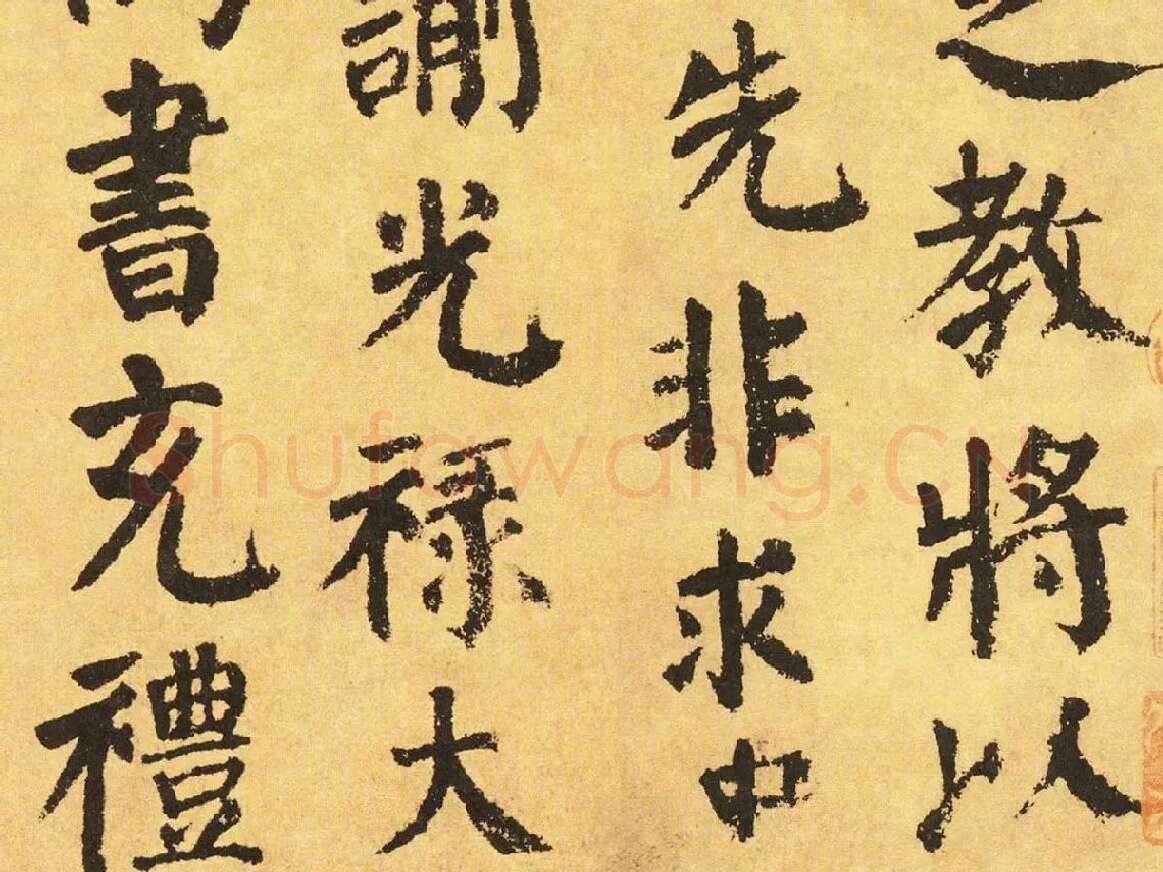 之教將以
先非求中
諭光祿大
書充禮
Shufawang.CN